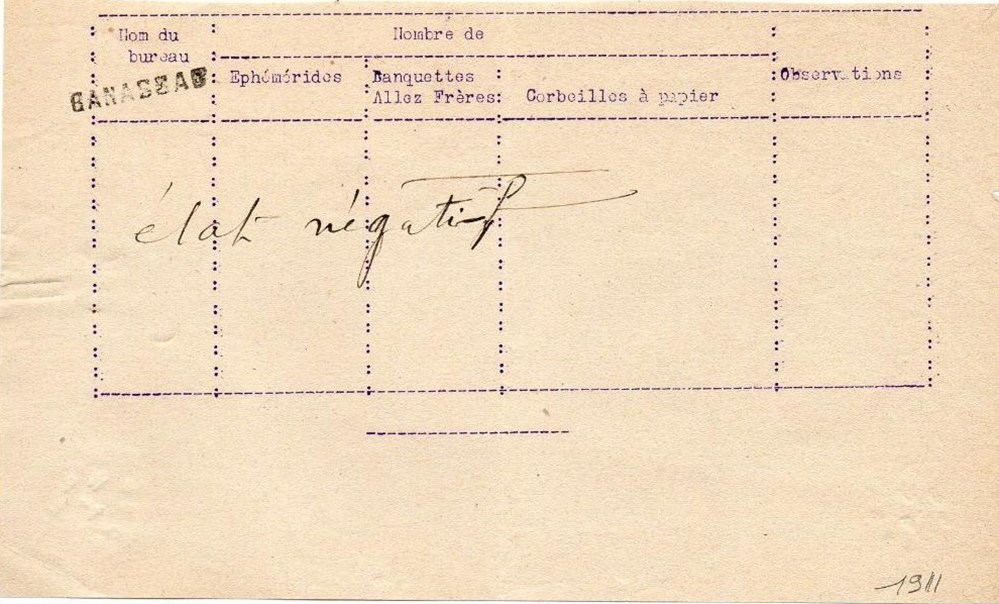 Nom du
bureau
Nombre de
BANASSAC
Ephémérides
Banquettes
Allez Frères:
Corbeilles à papier
Observations
état négatif
1911